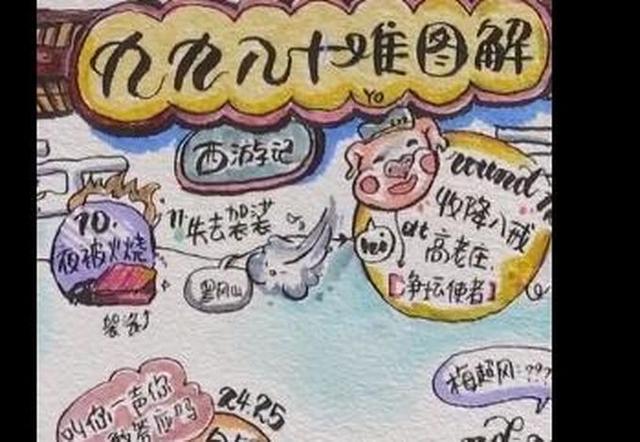 九九八十难图解
YO
西游记
10.
夜被火烧
袈裟
11.
失去袈裟
黑风山
round
收降八戒
at
高老庄
【净坛使者】
梅超风:???
叫你一声你
敢答应吗
24.25